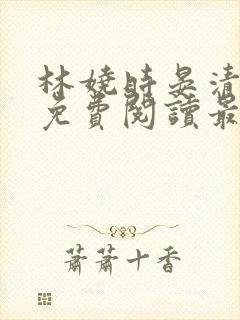 林嬈時晏清
免費閱讀最
蕭蕭十香